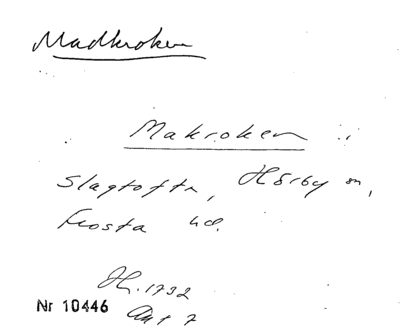 Madkroken
Makroken i
Slagtofta, Hörby sn,
Frosta hd.
H. 1732
Nr 10446
Akt 7